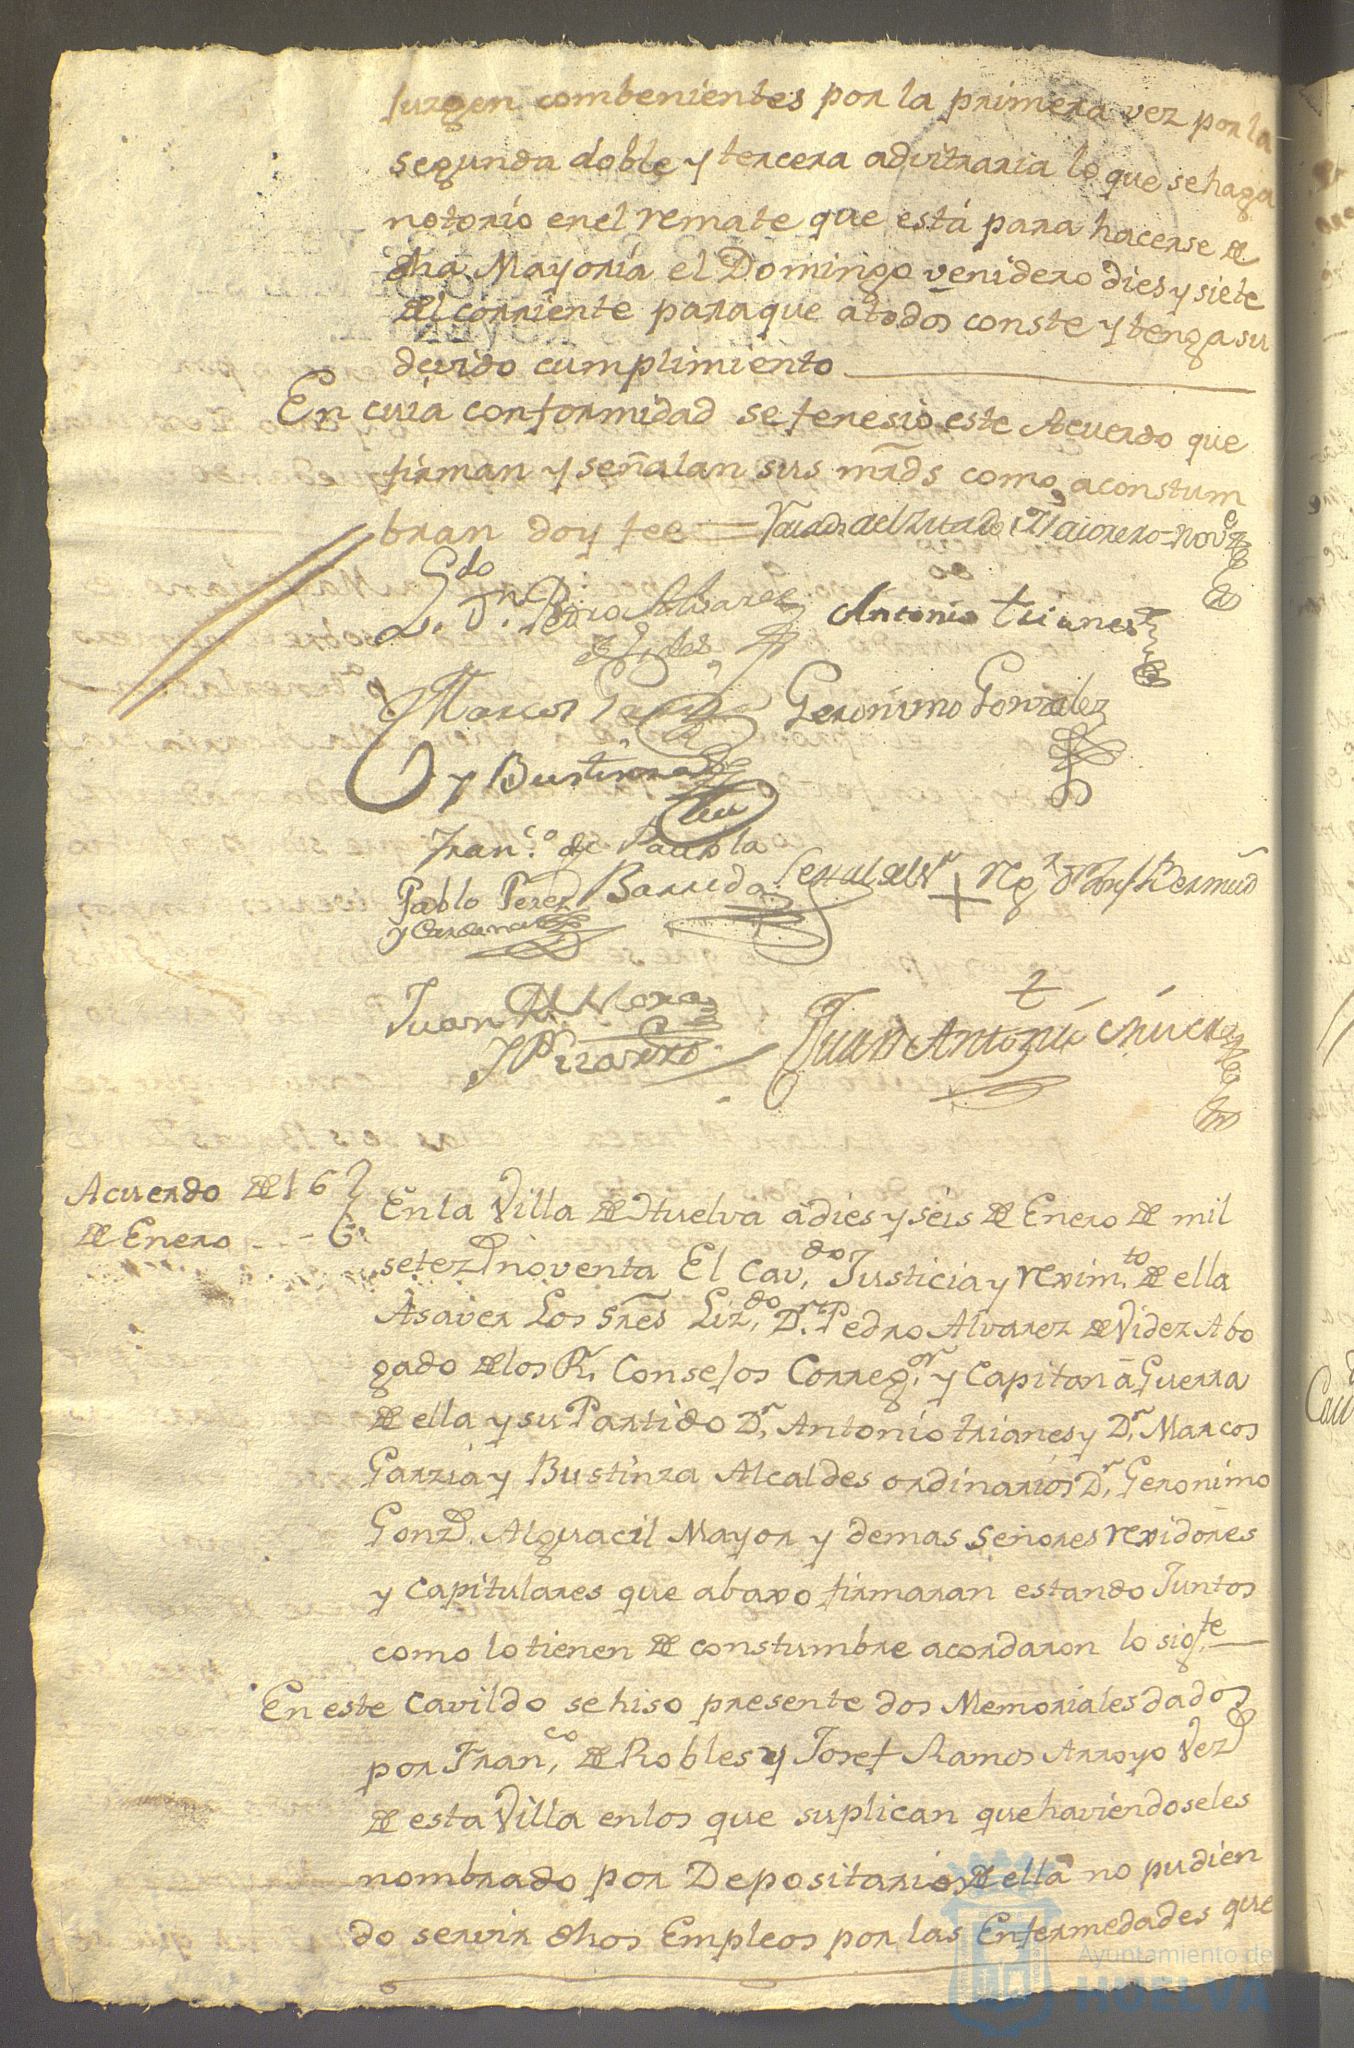 Jurgen combenientes por la primera vez por la
segunda doble y tercera advitraria lo que se haga
notorio en el remate que está para hacerse de
dha Mayoría el Domingo venidero dies y siete
del corriente para que atodos conste y tenga su
devido cumplimiento
En cuia conformidad se fenesió este Acuerdo que
firman y señalan sus mrds como aconstum
bran doy fee =
Ldo Dn. Pedro Alvarez
Antonio trianes
Marcos Garzia
Geronimo Gonzalez
y Bustinza
Franco. de Paula
Pablo Perez Barreda
y Cardenas
Juan
Mora
Pizarro
Juan Antonio
Acuerdo de 16
de Enero
En la Villa de Huelva a dies y seis de Enero de mil
setezs noventa El Cavdo. Justicia y reximto. de ella
Asaver Los Sres Lizdo. Dn. Pedro Alvarez de Videz Abo
gado de los Rs. Consejos Corregor. y Capitan á Guerra
de ella y su Partido Dn. Antonio trianes y Dn. Marcos
Garzia y Bustinza Alcaldes ordinarios Dn. Geronimo
Gonz. Alguacil Mayor y demas Señores rexidores
y Capitulares que abaxo firmaran estando Juntos
como lo tienen de constumbre acordaron lo sigte
En este Cavildo se hiso presente dos Memoriales dados
por Franco. de Robles y Josef Ramos Arroyo Vezs
de esta Villa en los que suplican que haviendoseles
nombrado por Depositarios de ella no pudien
do servir dhos Empleos por las Enfermedades que
Ayuntamiento de
HUELVA